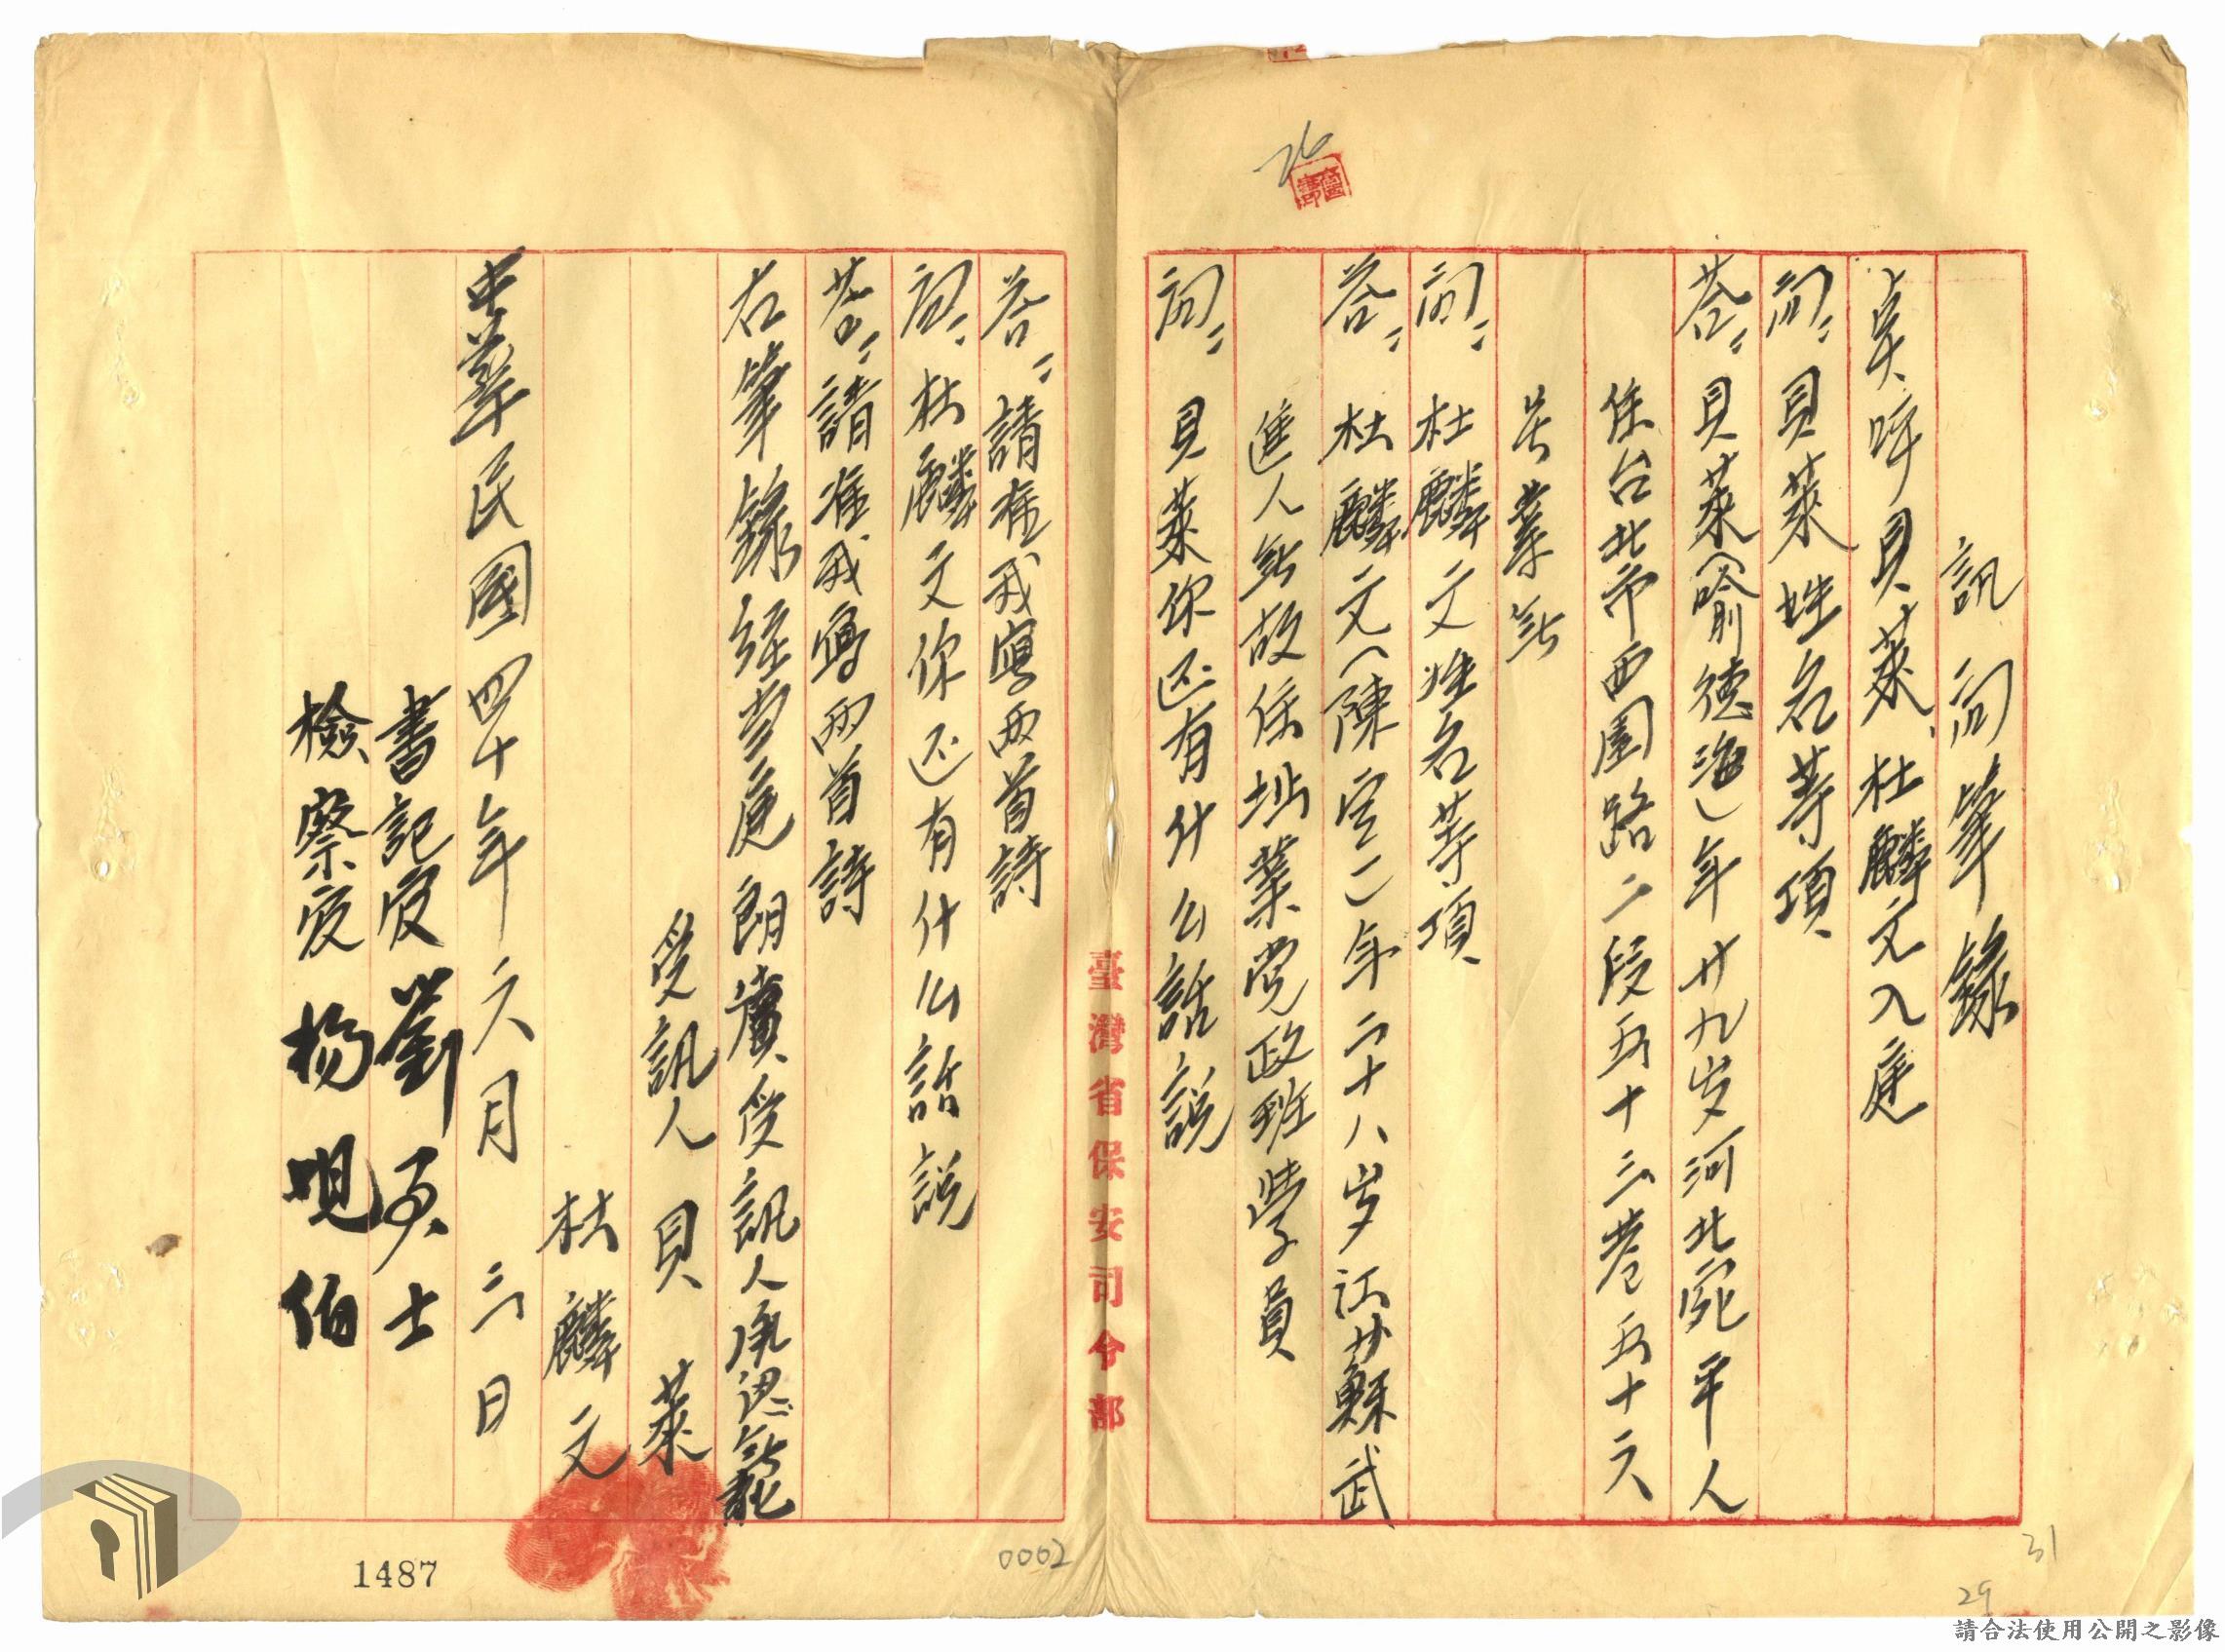 訊問筆錄
點呼貝萊、杜麟文入庭
問：貝萊姓名等項
答：貝萊（喻德海）年廿九岁河北宛平人
住台北市西園路二段五十三巷五十六
号業無
問：杜麟文姓名等項
答：杜麟文（陳定二）年二十八岁江苏蘇武
進人無故住址業党政班学員
問：貝萊你还有什么話說
答：請准我寫两首詩
問：杜麟文你还有什么話說
答：請准我寫两首詩
右筆錄經當庭朗讀受訊人承認無訛
受訊人 貝萊
杜麟文
中華民國四十年六月三日
書記官 劉
檢察官 楊 伯
臺灣省保安司令部
26
0002
1487
31
29
請合法使用公開之影像